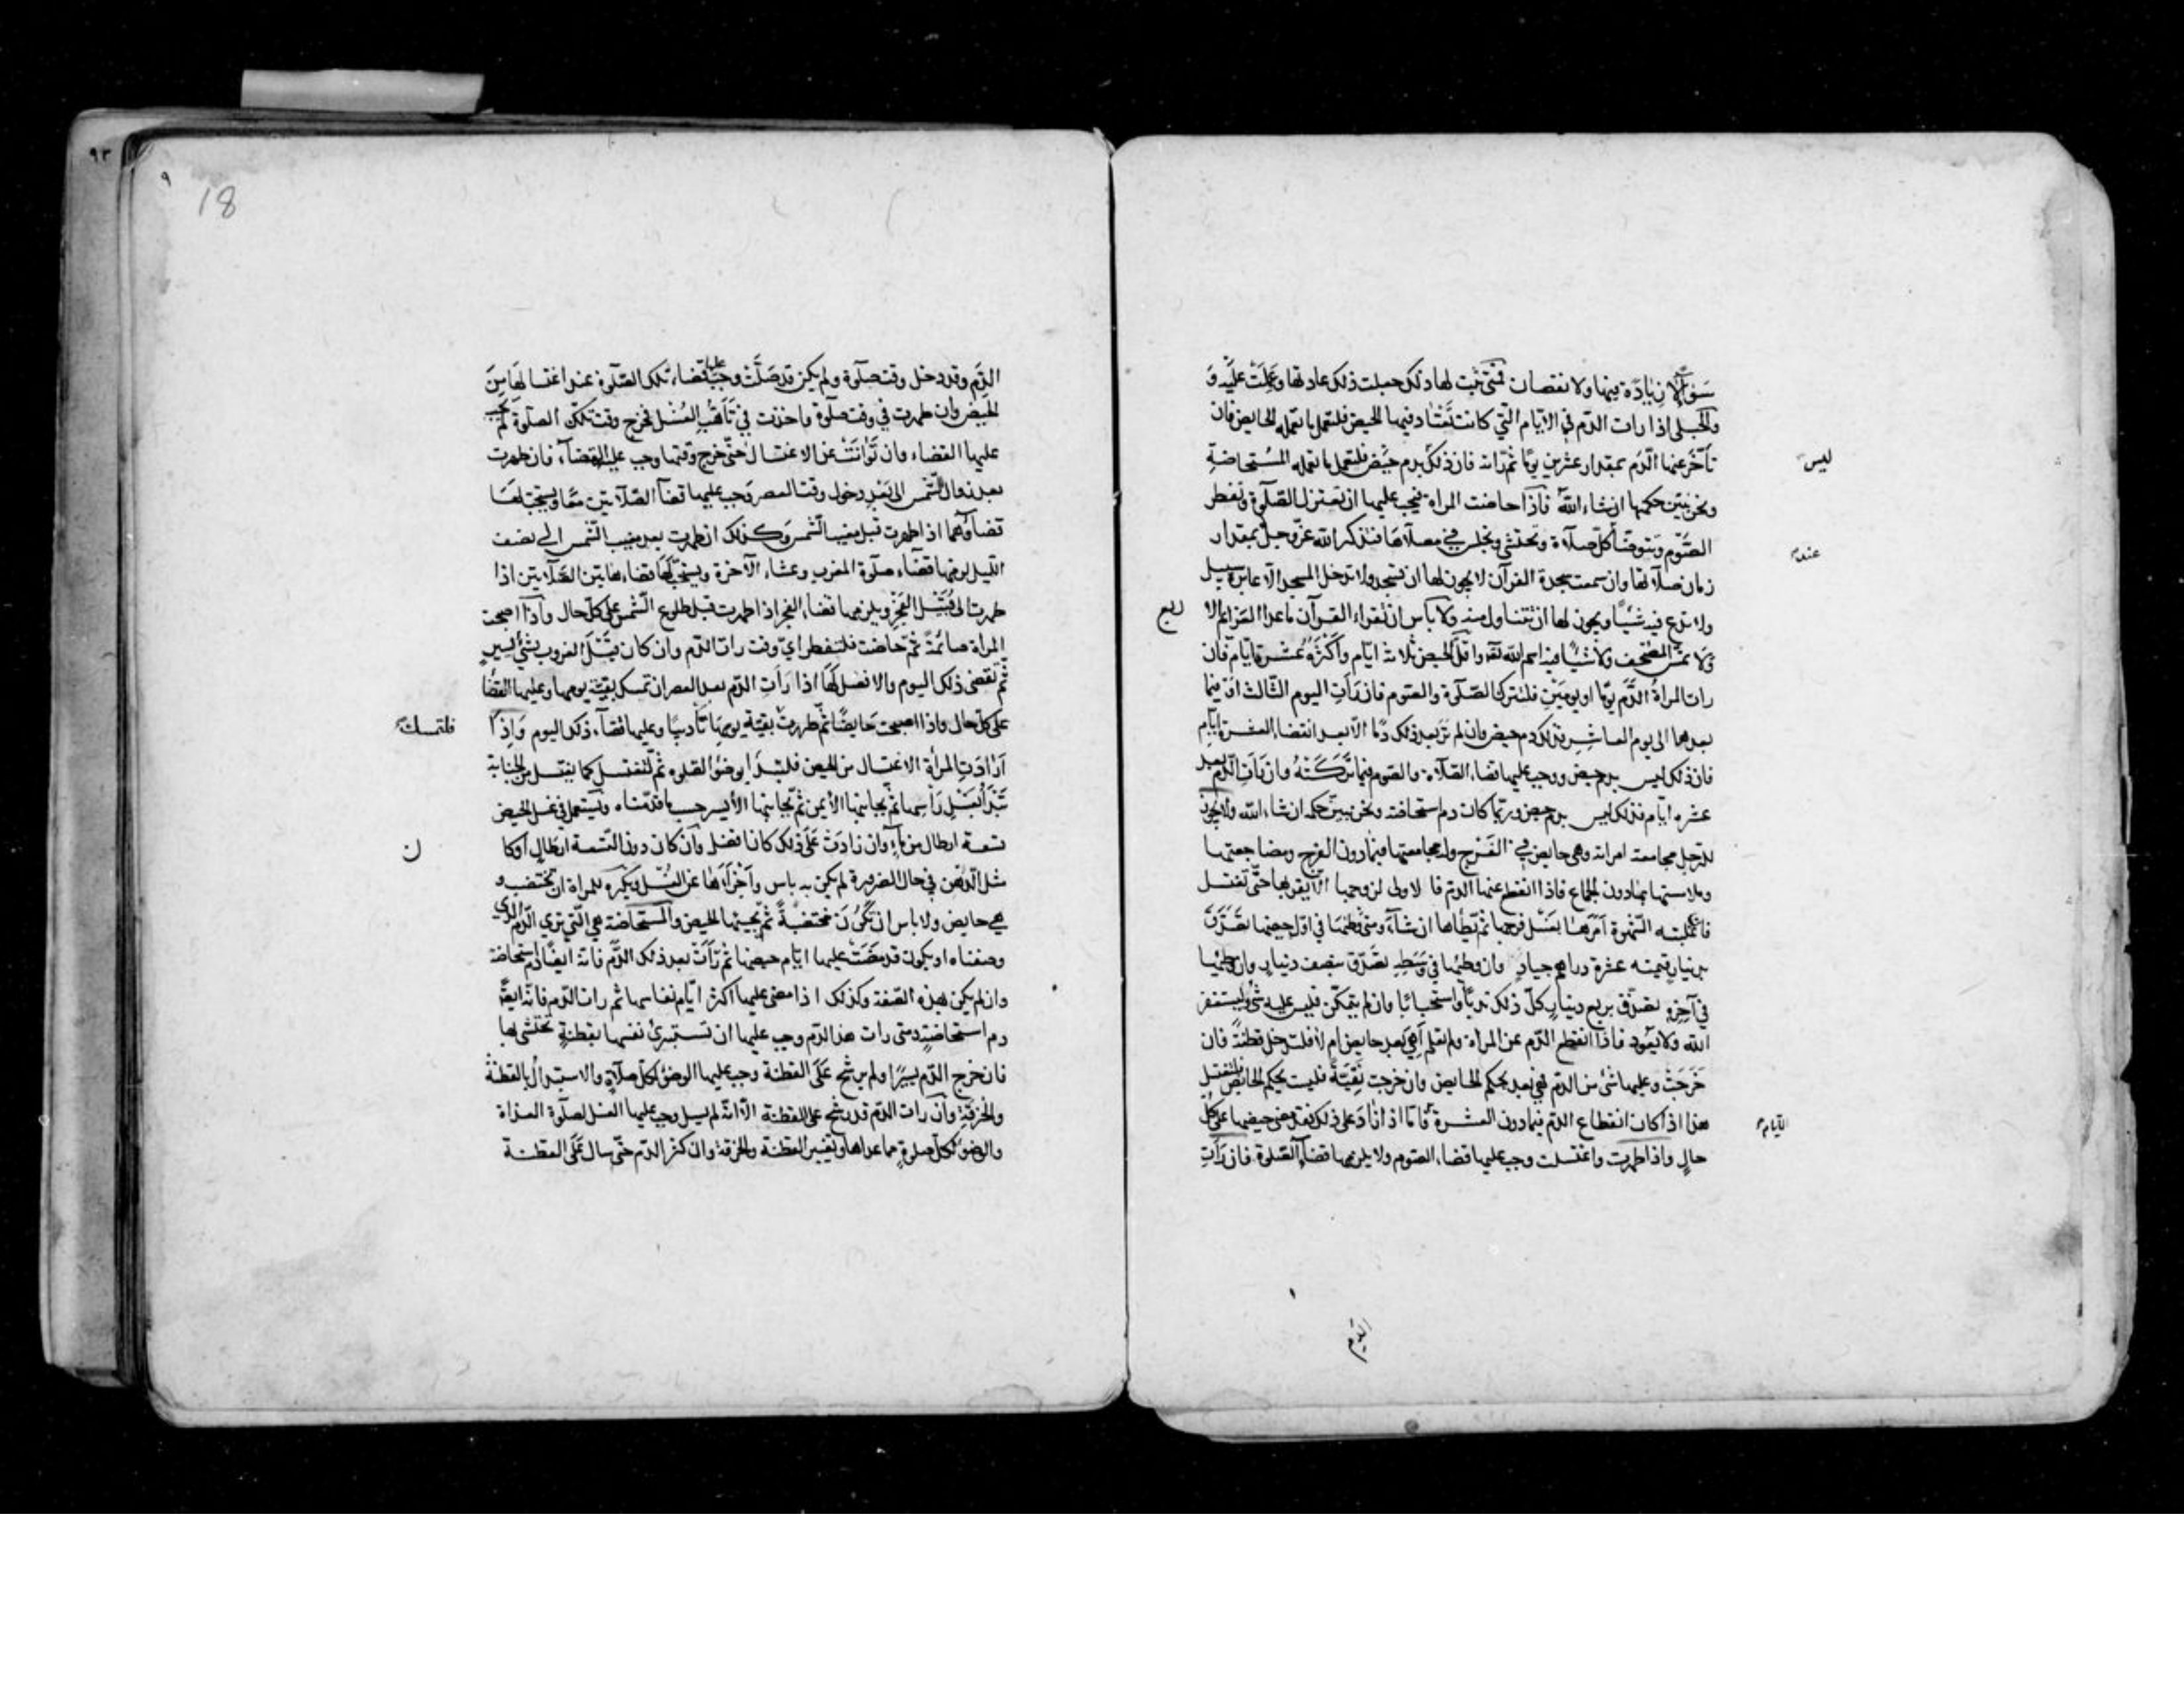 سَوَاءً لا زِيَادَة فيها ولا نقصان فمتى ثبت لها ذلك جعلت ذلك عادتها وعَمِلَتْ عَلَيْهِ وَ
والحبلى اذا رات الدّم في الايّام الّتي كانت تَعْتَاد فيها الحيض فلتعمل ما تعمله الحايض فان
تأخّر عنها الدّم بمقدار عشرين يومًا ثم راته فان ذلك بدم حَيْض فلتعمل ما تعمله المُستحاضة
ليس
ونحن نبيّن حكمها ان شاء الله فاذا حاضت المراة فيجب عليها ان تعتزل الصّلوة وتفطر
الصّوْم وتتوضّأ كلّ صلاة وتحتشي وتجلس في مصلّاها فتذكر الله عزّ وجلّ بمقدار
عند
زمان صلاتها وان سمعت سجدة القرآن لا يجوز لها ان تسجد ولا تدخل المسجد الّا عابرة سبيل
ولا تدع فيه شيئًا ويجوز لها ان تتناول منه ولا باس ان تقراء القرآن ما عدا العزائم الا
ربع
ولا تمسّ المصْحف ولا شيئًا فيه اسم الله تعالى واقلّ الحيض ثلاثة ايّام وأكثَرُهُ عَشَرة ايّام فان
رات المراةُ الدَّم يومًا او يومَيْنِ فلتترك الصّلوة والصّوم فان رَأَتِ اليوم الثّالث او فيما
بعدهما الى يوم العاشر فذلك دم حيض وان لم تر بعد ذلك دمًا الّا بعد انقضاء العشرة ايّامٍ
فان ذلك ليس بدم حيض ووجب عليها قضاء الصّلاة والصّوم فيما تَرَكَتْهُ وان رَأَتِ الدّمَ بعد
عشرة ايّام فذلك ليس بدم حيض وربّما كان دم استحاضة ونحن نبيّن حكمه ان شاء الله ولا يجوز
للرّجل مجامعة امراته وهي حايض في الفَرْج وله مجامعتها فيما دون الفرج ومضاجعتها
وملامستها بما دون الجماع فاذا انقطع عنها الدّم فا لاولى لزوجها الّا يقربها حتّى تغتسل
فان غلبته الشّهوة أمَرَهَا بغَسْل فرجها ثم يطأها ان شآءَ ومتى وطئها في اوّل حيضها تَصَدَّقَ
بدينار قيمته عشرة دراهم جيادٍ وان وطئها في وَسَطِهِ تصدّق بنصف دينارٍ وان وطئها
في آخِرِهِ تصدّق بربع دينارٍ كلّ ذلك ندبًا واستحبابًا وان لم يتمكّن فليس عليه شئ وليستغفر
الله ولا يَعُود فاذا انقطع الدّم عن المراة ولم تعلم أهِيَ بعد حايض ام لا فلتدخل قطنةً فان
خَرَجَتْ وعليها شئ من الدّم فهي بعد بحكم الحايض وان خرجت نَقِيّةً فليست بحكم الحايض فلتغتسل
هذا اذا كان انقطاع الدّم فيما دون العشرة فامّا اذا زادَ على ذلك فقد مضى حيضها على كُلِّ
الايام
حالٍ واذا طهرت واغتسلت وجب عليها قضاء الصّوم ولا يلزمها قضآء الصّلوة فان رَأَتِ
الدّم
٩٣
٩
18
الدّم وقد دخل وقت صلوة ولم يكن قد صَلّتْ وجب عليها قضاء تلك الصّلوة عند اغتسالها مِنَ
الحيض وان طهرت في وقت صلوة واخذت في تَأَهُّبِ الغُسْل فخرج وقت تلك الصلوة لم يجب
عليها القضاء وان تَوَانَتْ عن الاغتسال حتّى خرج وقتها وجب عليها القضآء فان طهرت
بعد زوال الشّمس الى بَعْدِ دخول وقت العصر وَجب عليها قضآ الصّلاتين معًا ويستحبّ لها
قضاؤهما اذا طهرت قبل مغيب الشّمس وكذلك ان طهرت بعد مغيب الشّمس الى نصف
اللّيل لزمها قضآء صلوة المغرب وعشاء الآخرة ويستحبّ لها قضاء هاتين الصّلاتين اذا
طهرت الى قُبَيْل الفَجْرِ ويلزمها قضاء الفجر اذا طهرت قبل طلوع الشّمس على كلّ حال واذا اصبحت
المراة صائمةً ثمّ حاضت فلتفطر ايّ وقت رات الدّم وان كان قَبْلَ الغروب بشئٍ يَسيرٍ
ثم تقضى ذلك اليوم والافضل لها اذا رَأَتِ الدّم بعد العصر ان تمسك بقيّة يومها وعليها القضآء
على كلّ حال واذا اصبحت حَايضًا ثمّ طهرت بقيّة يومها تأديبًا وعليها قضآء ذلك اليوم وَاِذَا
فلتمسك
اَرَادَتِ المرأة الاغتسال من الحيض فلتبدَأ بوضوء الصّلوة ثم لتغتسل كما يغتسل من الجنابة
تَبْدَأ بغسْلِ رَأسِها ثمّ بجانبها الأيمن ثمّ بجانبها الأيسر حسب ما قدّمناه وتستعمل في غسل الحيض
تسعة ارطال من مآءٍ وان زادت عَلَى ذلك كان افضل وَان كان دون التّسعة ارطالٍ اوكا
ن
مثل الدّهن في حال الضرورة لم يكن به باس واجزأها عن الغُسْل ويكره للمراة ان تختضب و
هي حايض ولا باس ان تكُونَ مختضبةً ثمّ يجيئها الحيض والمستحاضة هي الّتي ترى الدّم الّذي
وصفناه او يكون قد مَضَتْ عليها ايّام حيضها ثم رَأَتْ بعد ذلك الدّم فانه ايضًا دم استحاضة
وان لم يكن بهذه الصّفة وكذلك اذا مضى عليها اكثر ايّام نفاسها ثم رات الدّم فانّه ايضًا
دم استحاضةٍ ومتى رات هذا الدّم وجب عليها ان تستبرئ نفسها بقطنةٍ تحتشى بها
فان خرج الدّم يسيرًا ولم يرشح عَلَى القطنة وجب عليها الوضوء لكلّ صلاةٍ والاستبدالُ بالقطنة
والخرقةِ وان رات الدّم قد رشح على القطنة الّا انّه لم يسل وجب عليها الغسل لصلوة الغداة
والوضوء لكلّ صلوةٍ مما عداها وتغيير القطنة والخرقة وان كثر الدّم حتّى سال عَلَى القطنة